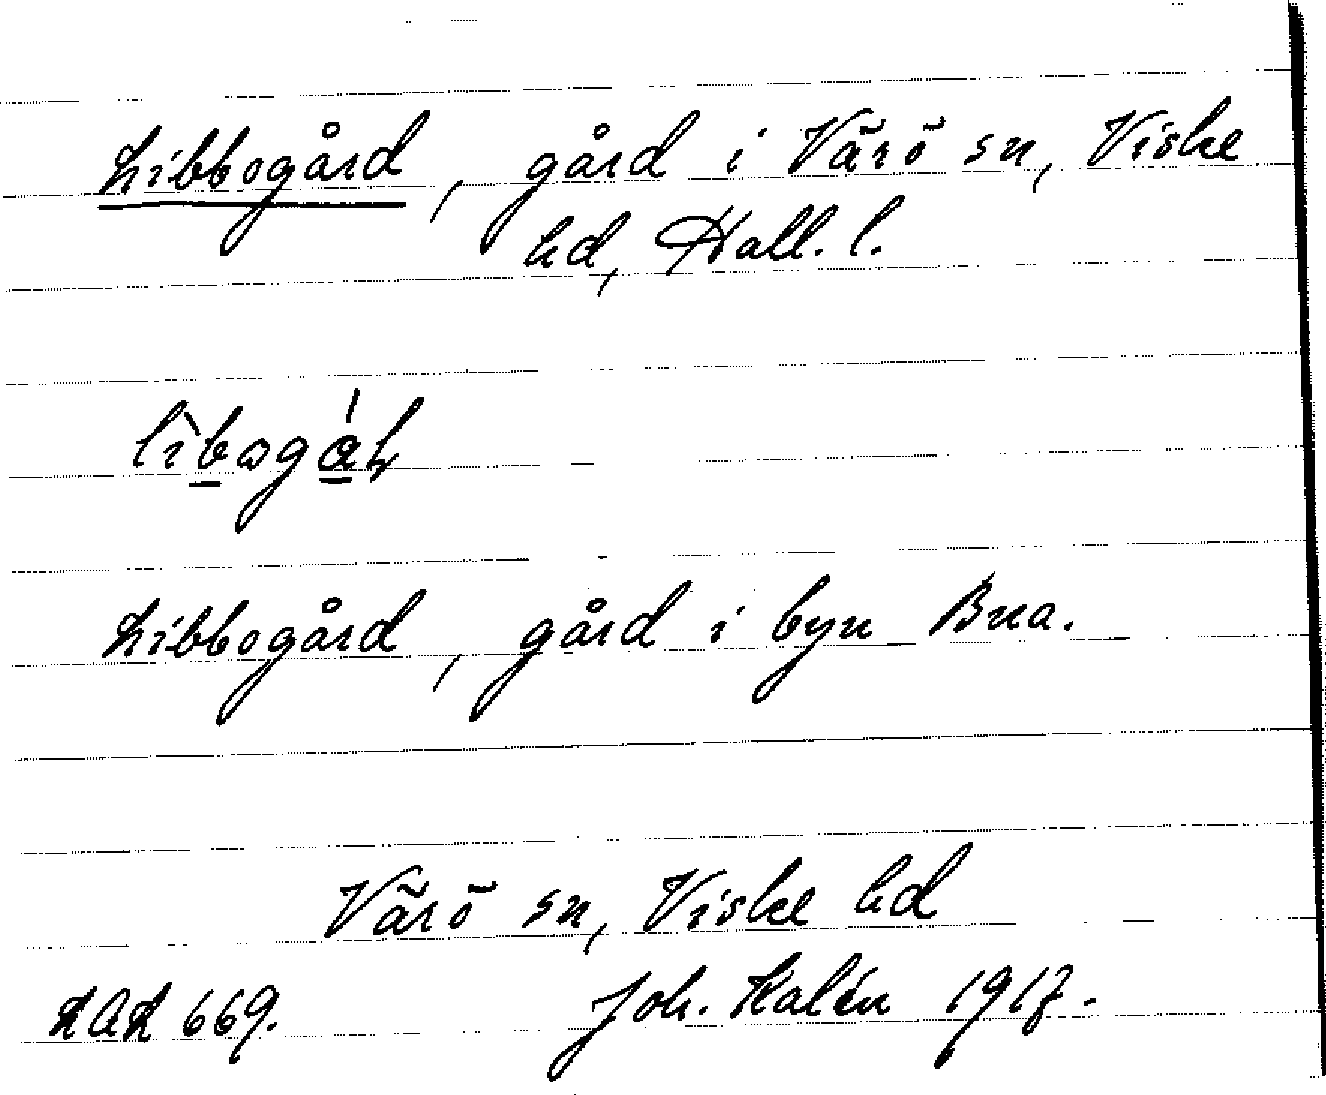 Libbogård, gård i Värö sn, Viske
hd, Hall. l.
Libbogård, gård i byn Bua.
Värö sn, Viske hd
LAL 669. Joh. Kalén 1917.